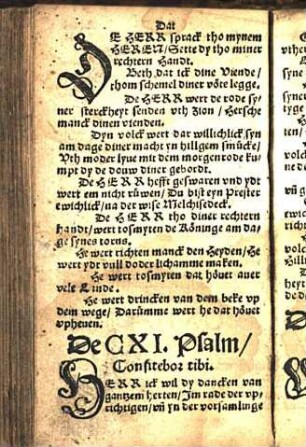 Dat
DE HERR sprack tho mynem
HEREN/ Sette dy tho miner
rechtern Handt.
Beth dat ick dine Viende/
thom schemel diner vöte legge.
De HERR wert de rode sy-
ner sterckheyt senden vth Zion/ Hersche
manck dinen vienden.
Dyn volck wert dar willichlick syn
am dage diner macht yn hillgem smücke/
Vth moder lyue mit dem morgen rode ku-
mpt dy de douw diner gebordt.
De HERR hefft geswaren vnd ydt
wert em nicht rüwen/ Du bist eyn Prester
ewichlick/ na der wise Melchisedeck.
De HERR tho diner rechtern
handt/ wert tosmyten de Köninge am da-
ge synes torns.
He wert richten manck den Heyden/ He
wert ydt vull doder lichamme maken.
He wert tosmyten dat höuet auer
vele Linde.
He wert drincken van dem beke vp
dem wege/ Darümme wert he dat höuet
vpheuen.
De CXI. Psalm/
Confitebor tibi.
HERR ick wil dy dancken van
gantzem herten/ Jm rade der vp-
richtigen/ vñ yn der vorsamlinge